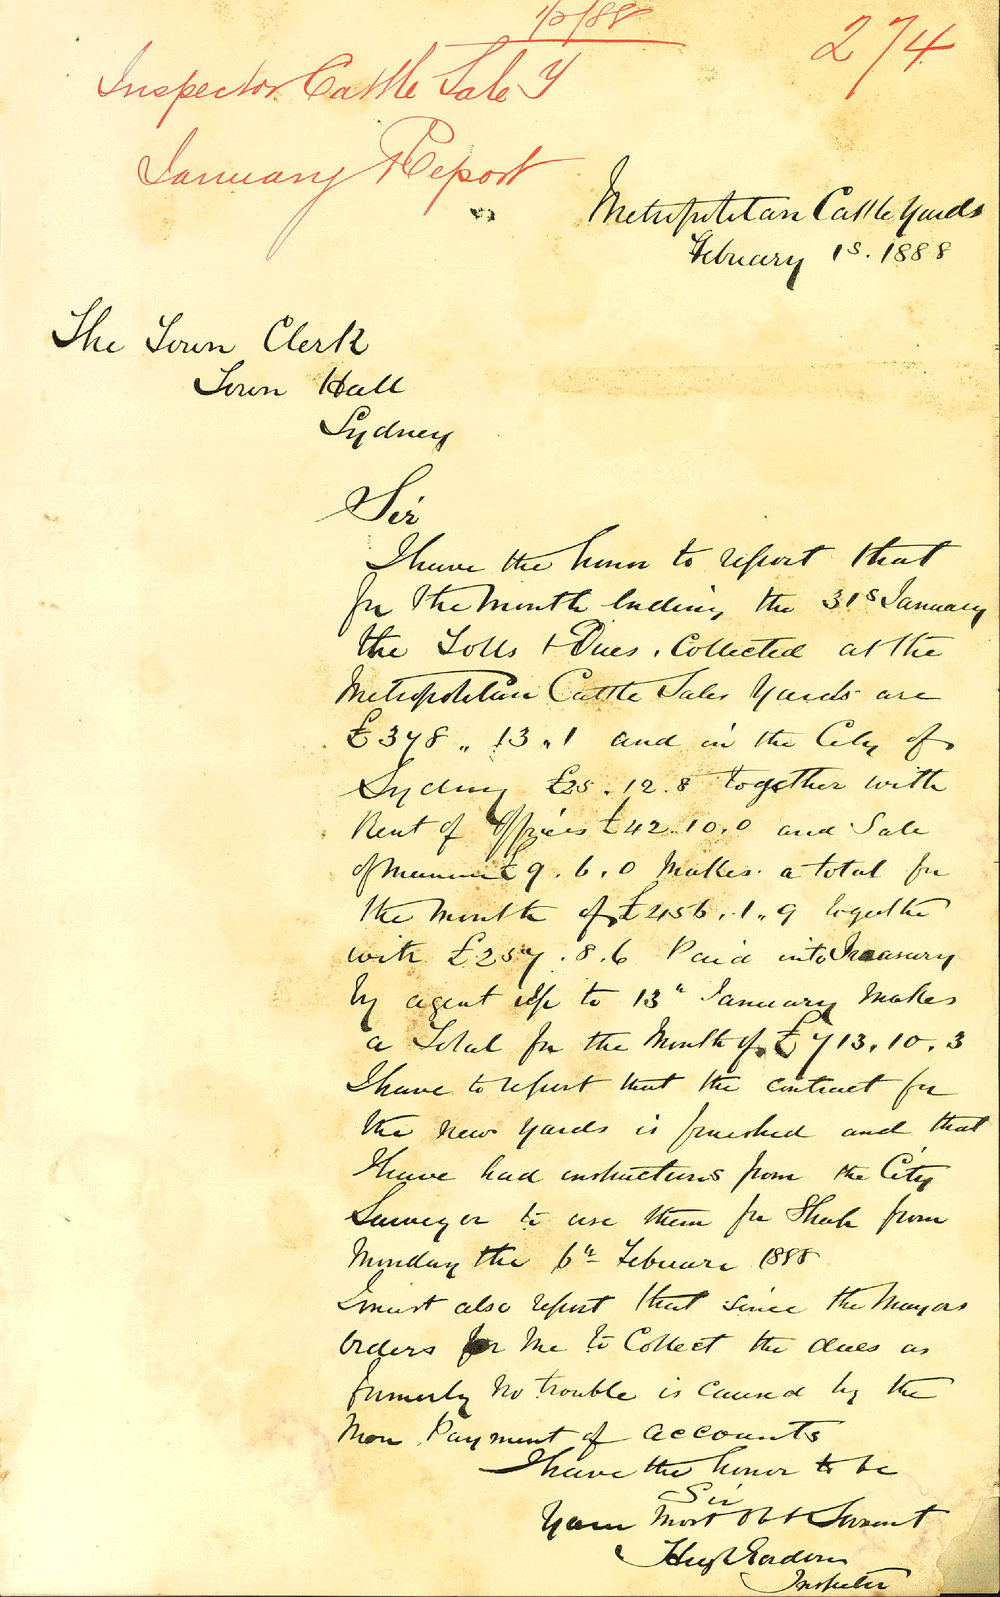 1/2/88
274
Inspector Cattle Sale Y
January Report
Metropolitan Cattle Yards
February 1s. 1888
The Town Clerk
Town Hall
Sydney
Sir
I have the honor to report that
for the Month Ending the 31s January
the Tolls + Dues. Collected at the
Metropolitan Cattle Sales Yards are
£378 „ 13 „ 1 and in the City of
Sydney £25 . 12 . 8 together with
Rent of Offices £42 . 10 . 0 and Sale
of manure £9 . 6 . 0 Makes a total for
the Month of £456 . 1 „ 9 together
with £257 . 8 . 6 Paid into Treasury
by agent up to 13th January Makes
a Total for the Month of £713 . 10 . 3
I have to report that the contract for
the new yards is finished and that
I have had instructions from the City
Surveyor to use them for Sheep from
Monday the 6th February 1888
I must also report that since the Mayors
orders for Me to Collect the dues as
formerly No trouble is caused by the
Non Payment of accounts
I have the honor to be
Sir
Your Most Obt Servant
Hugh Gordon
Inspector